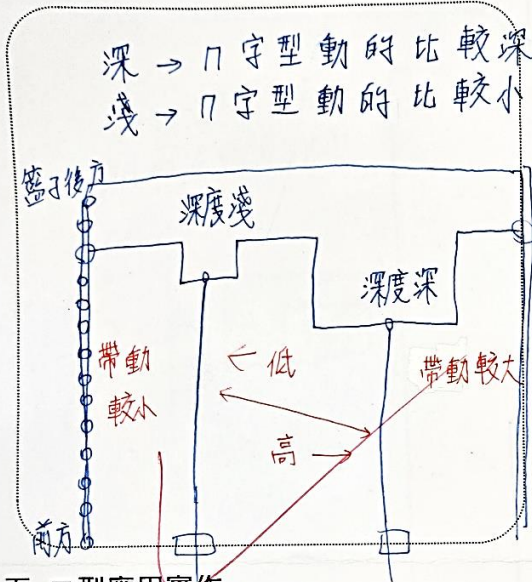 深 → ㄇ字型動的比較深
淺 → ㄇ字型動的比較小
籃子後方
深度淺
深度深
帶動
較小
← 低
帶動較大
高 →
前方